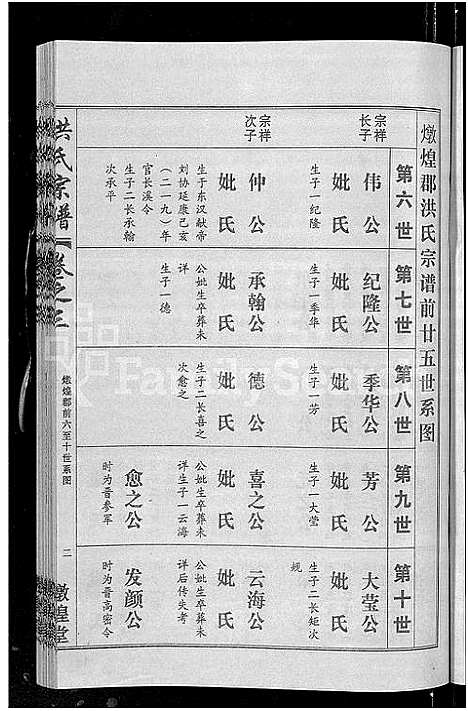 燉煌郡洪氏宗谱前廿五世系图
第六世
宗祥
长子
伟公
妣氏
生子一纪隆
宗祥
次子
仲公
妣氏
生于东汉献帝
刘协延康己亥
(二一九)年
官长溪令
生子二长承翰
次承平
第七世
纪隆公
妣氏
生子一季华
承翰公
妣氏
公妣生卒葬未
详
生子一德
第八世
季华公
妣氏
生子一芳
德公
妣氏
生子二长喜之
次愈之
第九世
芳公
妣氏
生子一大莹
喜之公
妣氏
公妣生卒葬未
详生子一云海
愈之公
时为晋参军
第十世
大莹公
妣氏
生子二长矩次
规
云海公
妣氏
公妣生卒葬未
详后传失考
发颜公
时为晋高密令
洪氏宗谱
卷之三
燉煌郡前六至十世系图
二
燉煌堂
FamilySearch